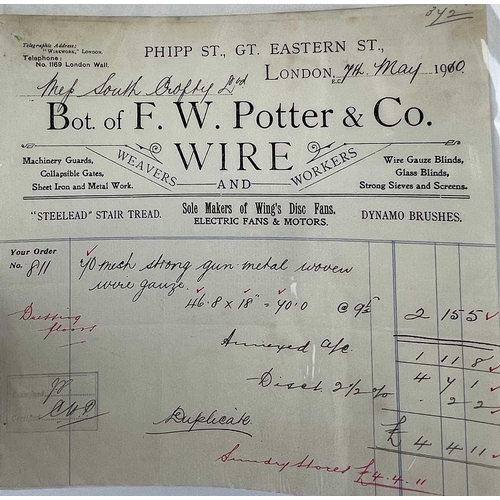 342
Telegraphic Address:
"WIREWORK," London.
Telephone:
No. 1169 London Wall.
PHIPP ST., GT. EASTERN ST.,
LONDON, E.C. 7th May 1900.
Mess South Crofty Ltd
Bot. of F. W. Potter & Co.
WIRE
WEAVERS AND WORKERS
Machinery Guards,
Collapsible Gates,
Sheet Iron and Metal Work.
Wire Gauze Blinds,
Glass Blinds,
Strong Sieves and Screens.
"STEELEAD" STAIR TREAD.
Sole Makers of Wing's Disc Fans.
ELECTRIC FANS & MOTORS.
DYNAMO BRUSHES.
Your Order
No. 811
40 mesh strong gun metal woven
wire gauze.
46.8 x 18" = 70.0 @ 9½ 2 15 5
Dressing
floors
Annexed a/c. 1 11 8
4 7 1
Disct 2½ % . 2 2
£ 4 4 11
Duplicate
Sundry Stores £4.4.11